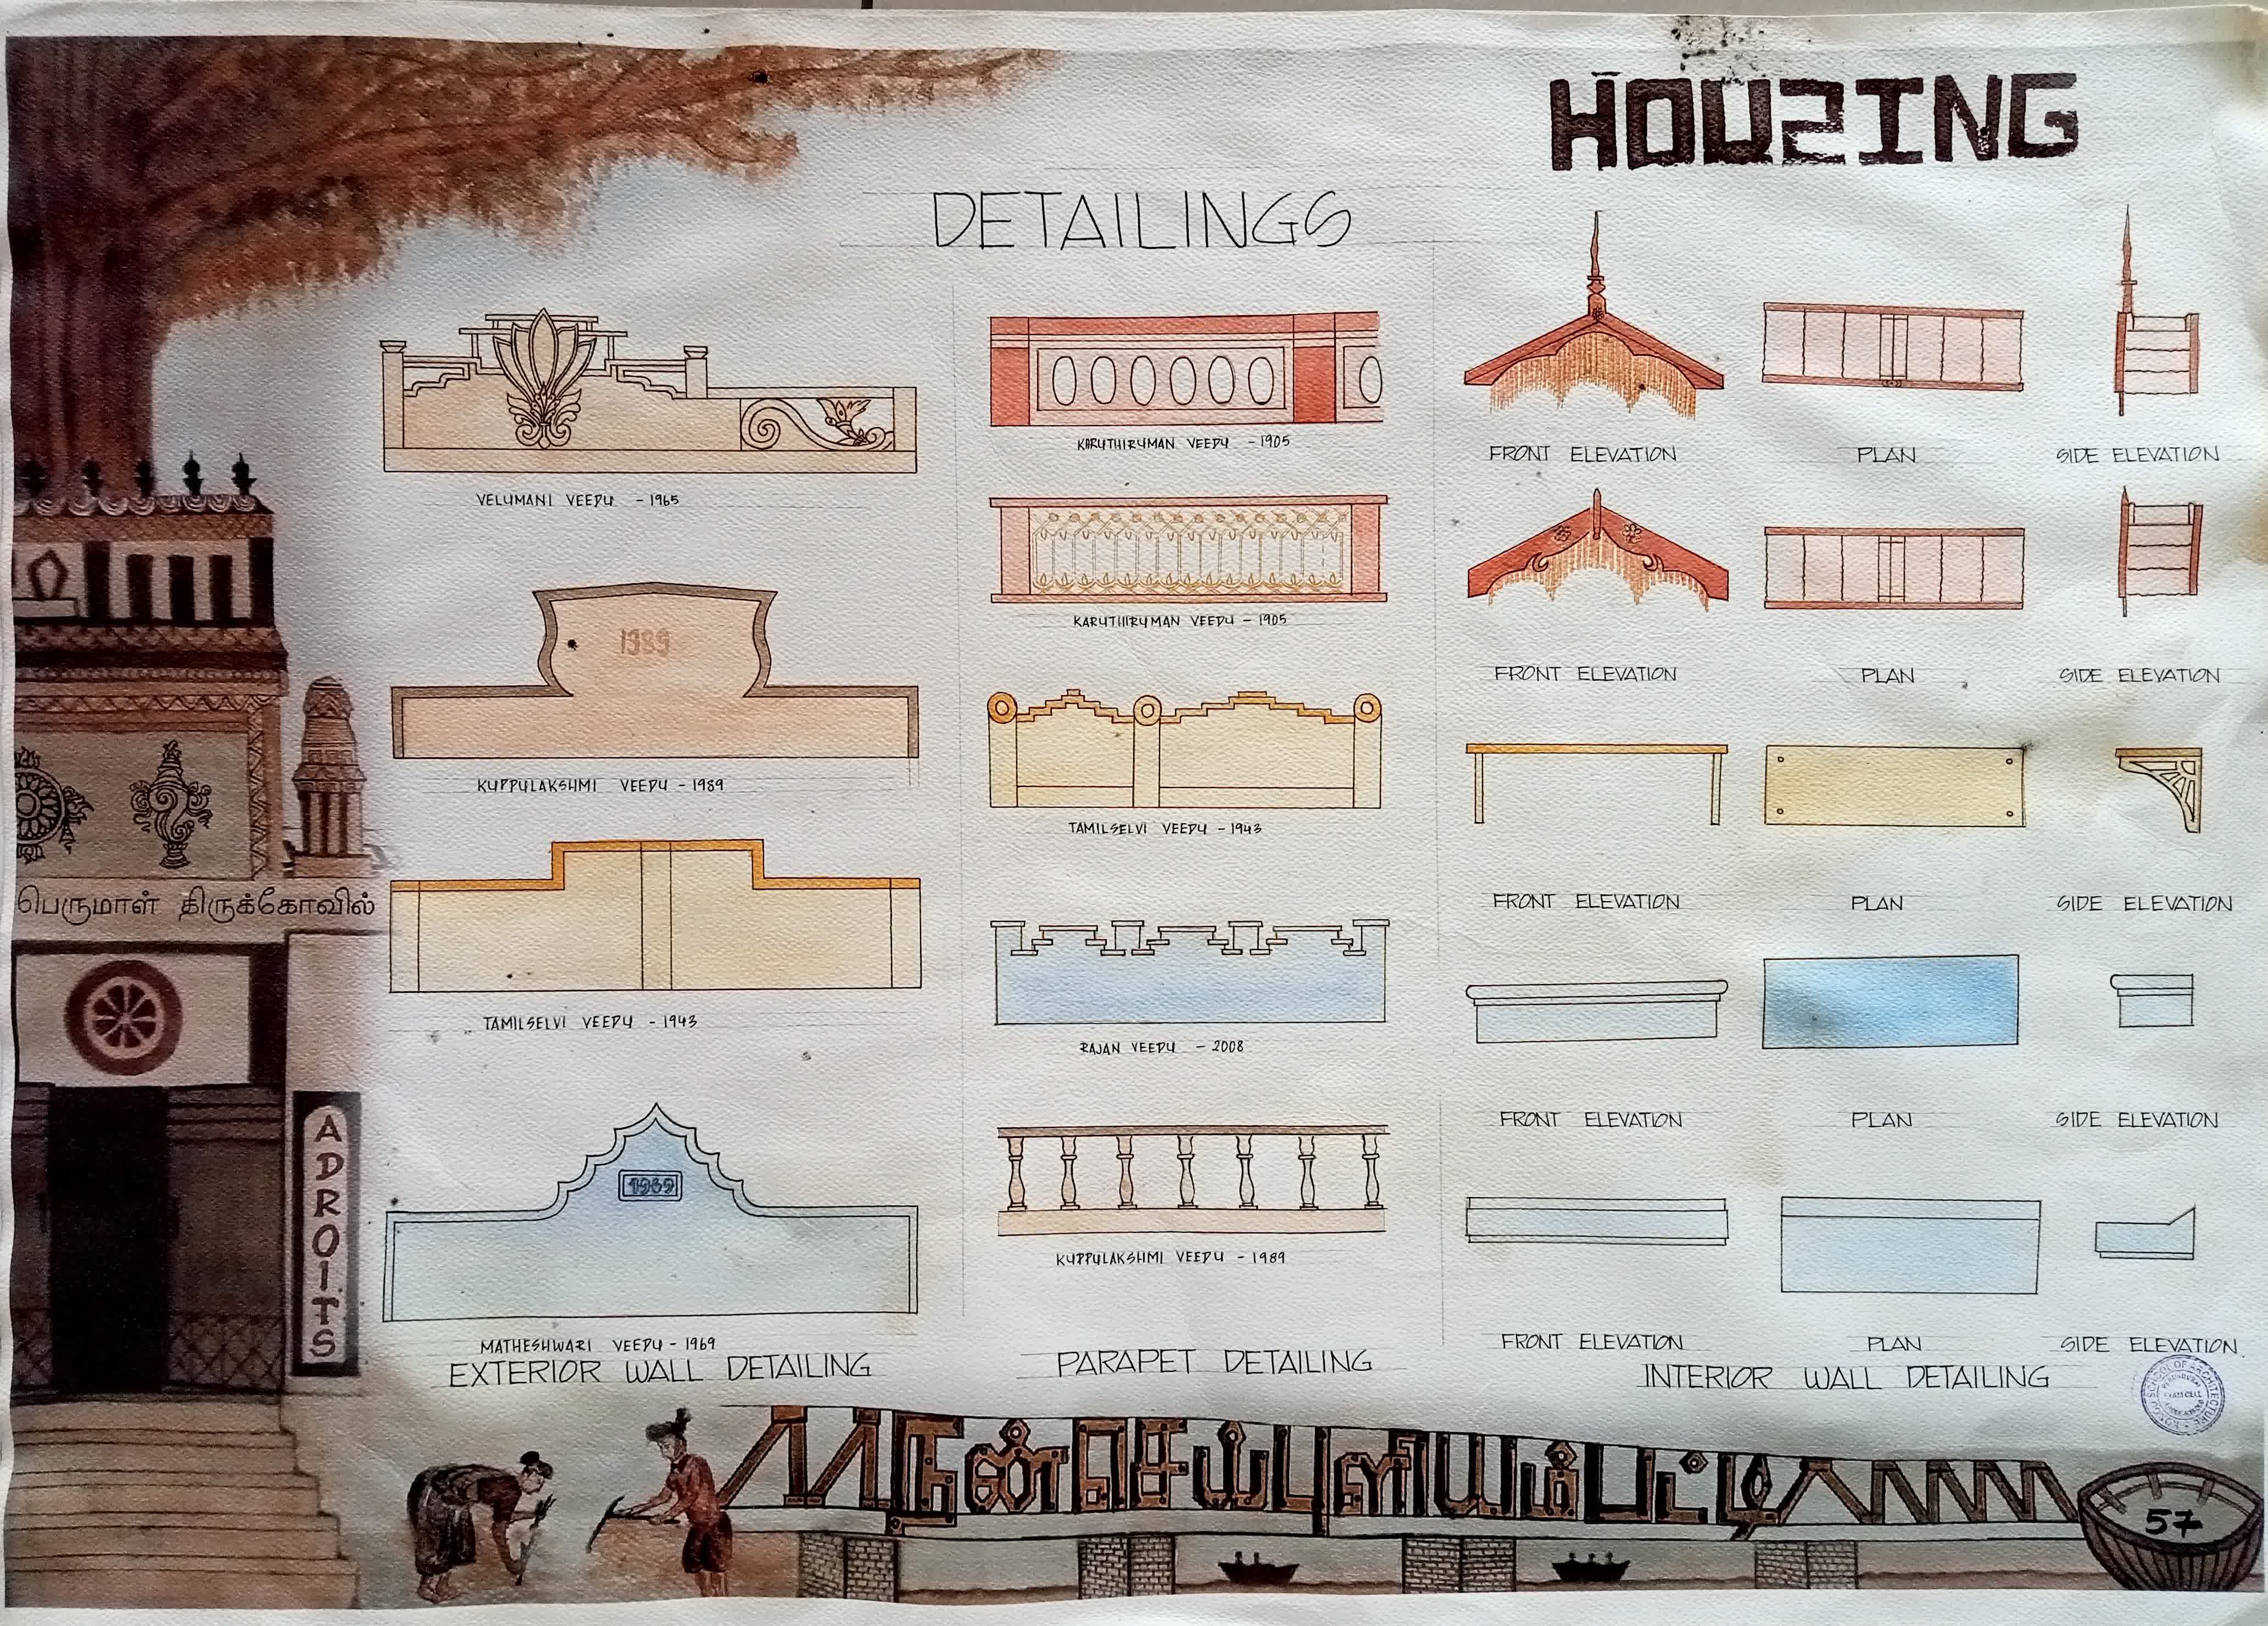 HOUSING
DETAILINGS
VELUMANI VEEDU - 1965
1989
KUPPULAKSHMI VEEDU - 1989
TAMILSELVI VEEDU - 1943
1969
MATHESHWARI VEEDU - 1969
EXTERIOR WALL DETAILING
KARUTHIRUMAN VEEDU - 1905
KARUTHIRUMAN VEEDU - 1905
TAMILSELVI VEEDU - 1943
RAJAN VEEDU - 2008
KUPPULAKSHMI VEEDU - 1989
PARAPET DETAILING
FRONT ELEVATION PLAN SIDE ELEVATION
FRONT ELEVATION PLAN SIDE ELEVATION
FRONT ELEVATION PLAN SIDE ELEVATION
FRONT ELEVATION PLAN SIDE ELEVATION
FRONT ELEVATION PLAN SIDE ELEVATION.
INTERIOR WALL DETAILING
KONGU SCHOOL OF ARCHITECTURE
EXAM CELL
பெருமாள் திருக்கோவில்
ADROITS
நன்செய்புளியம்பட்டி
57